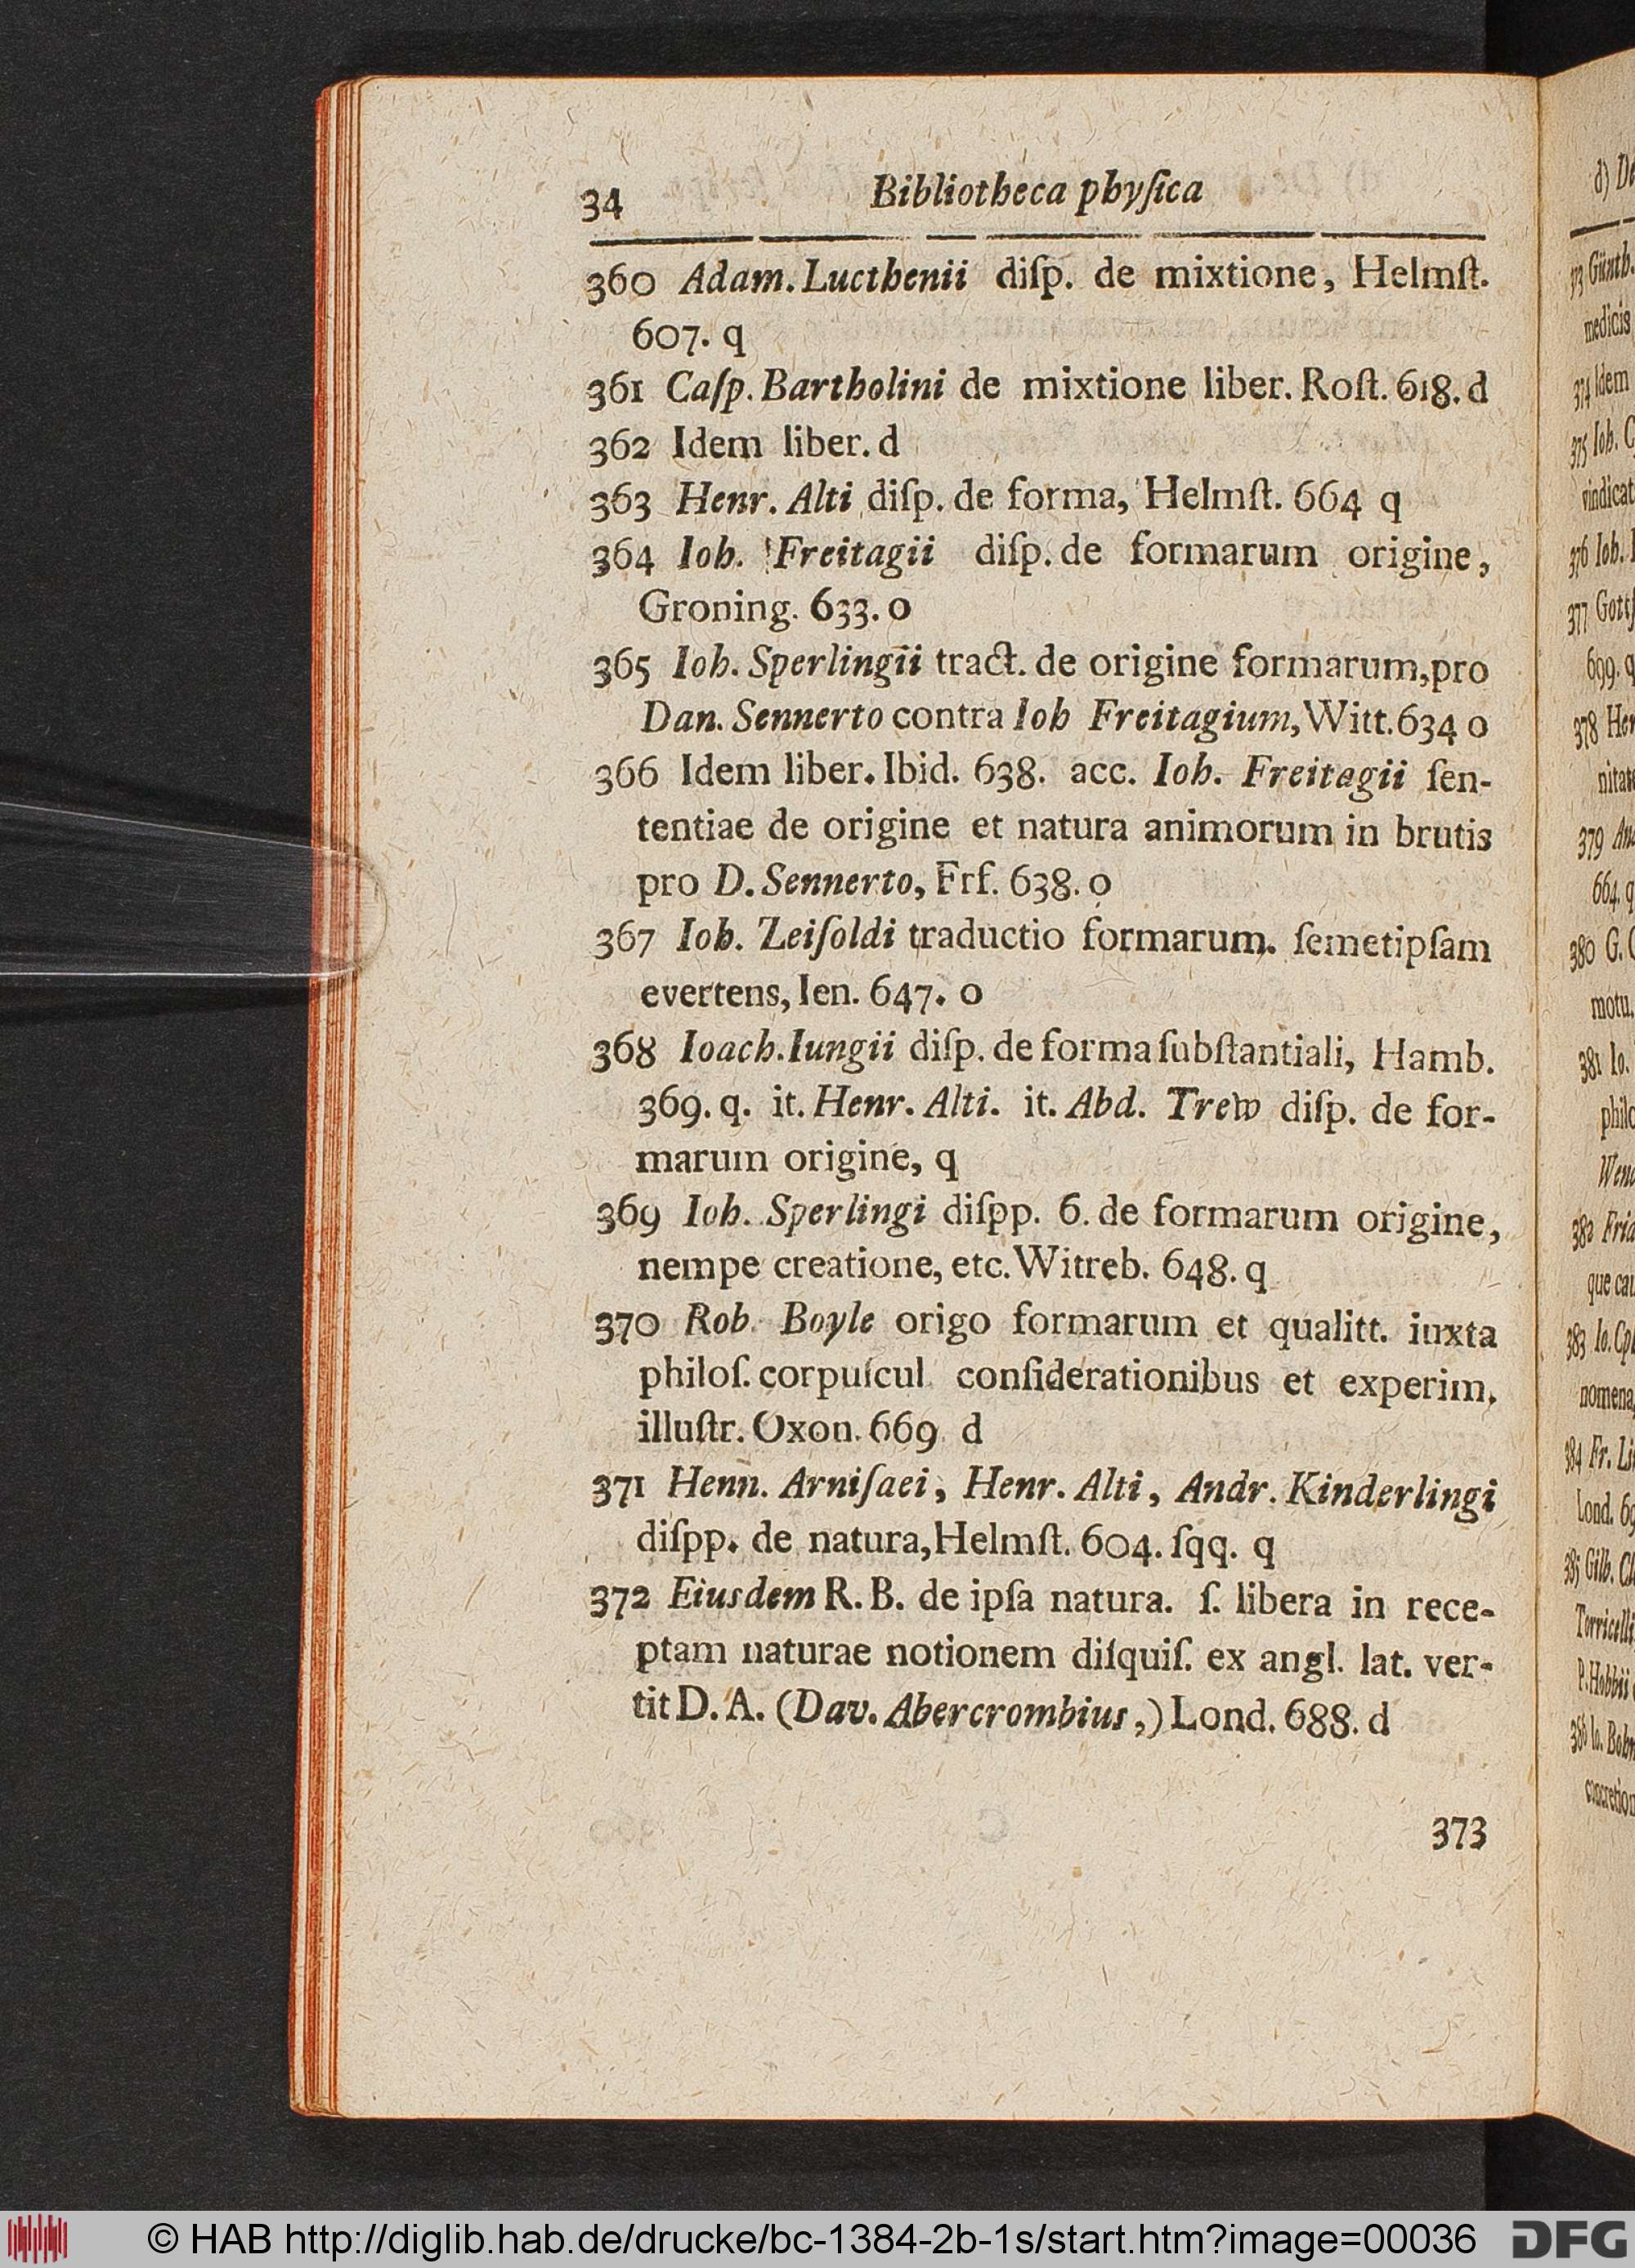 34 Bibliotheca phyſica
360 Adam. Lucthenii diſp. de mixtione, Helmſt.
607. q
361 Caſp. Bartholini de mixtione liber. Roſt. 618. d
362 Idem liber. d
363 Henr. Alti diſp. de forma, Helmſt. 664 q
364 Ioh. Freitagii diſp. de formarum origine,
Groning. 633. o
365 Ioh. Sperlingii tract. de origine formarum, pro
Dan. Sennerto contra Ioh Freitagium, Witt. 634 o
366 Idem liber. Ibid. 638. acc. Ioh. Freitagii ſen-
tentiae de origine et natura animorum in brutis
pro D. Sennerto, Frf. 638. o
367 Ioh. Zeiſoldi traductio formarum. ſemetipſam
evertens, Ien. 647. o
368 Ioach. Iungii diſp. de forma ſubſtantiali, Hamb.
369. q. it. Henr. Alti. it. Abd. Trew diſp. de for-
marum origine, q
369 Ioh. Sperlingi diſpp. 6. de formarum origine,
nempe creatione, etc. Witreb. 648. q
370 Rob. Boyle origo formarum et qualitt. iuxta
philoſ. corpuſcul conſiderationibus et experim.
illuſtr. Oxon. 669 d
371 Henn. Arniſaei, Henr. Alti, Andr. Kinderlingi
diſpp. de natura, Helmſt. 604. ſqq. q
372 Eiusdem R. B. de ipſa natura. ſ. libera in rece-
ptam naturae notionem diſquiſ. ex angl. lat. ver-
tit D. A. (Dav. Abercrombius,) Lond. 688. d
373
d) De
373 Günth.
medicis
374 Idem
375 Ioh. C
vindicat
376 Ioh.
377 Gottf
699. q
378 Her
nitate
379 And
664. q
380 G. C
motu.
381 Io.
philo
Wend
382 Frid
que cau
383 Io. Cph
nomena,
384 Fr. Li
Lond. 69
385 Gilb. Cl
Torricelli
P. Hobbii
386 Io. Bohn
concretion
© HAB http://diglib.hab.de/drucke/bc-1384-2b-1s/start.htm?image=00036 DFG